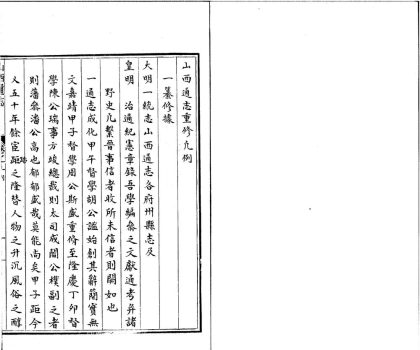 山西通志重修凡例
一纂修據
大明一統志山西通志各府州縣志及
皇明 治通紀憲章錄吾學編叅之文獻通考并諸
野史凡繫晉事信者收所未信者則闕如也
一通志成化甲午督學胡公謐始創其辭簡實無
文嘉靖甲子督學周公斯盛重脩至隆慶丁卯督
學陳公瑞事方竣總裁則太司成閻公樸副之者
則藩叅潘公高也郁郁盛哉莫能尚矣甲子距今
又五十年餘宦之隆替人物之升沉風俗之醇